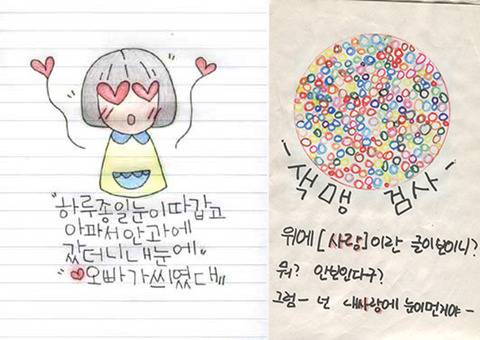 "하루종일눈이따갑고
아파서안과에
갔더니내눈에
"♥오빠가씌였대"
색맹 검사
위에[사랑]이란 글이보이니?
뭐? 안보인다구?
그럼- 넌 내사랑에 눈이먼거야-